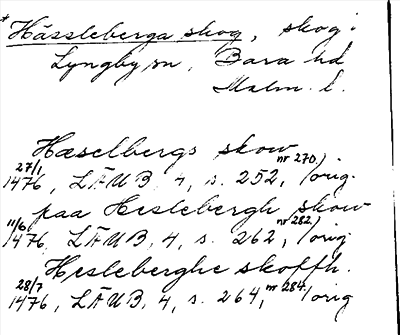 *Hässleberga skog, skog i
Lyngby sn, Bara hd
Malm. l.
Hæselbergs skow
27/1 1476, LÄUB, 4, s. 252, nr 270./orig.
paa Heslebergh skow
11/6 1476, LÄUB, 4, s. 262, nr 282./orig
Hesleberghe skoffh.
28/7 1476, LÄUB, 4, s. 264, nr 284./orig